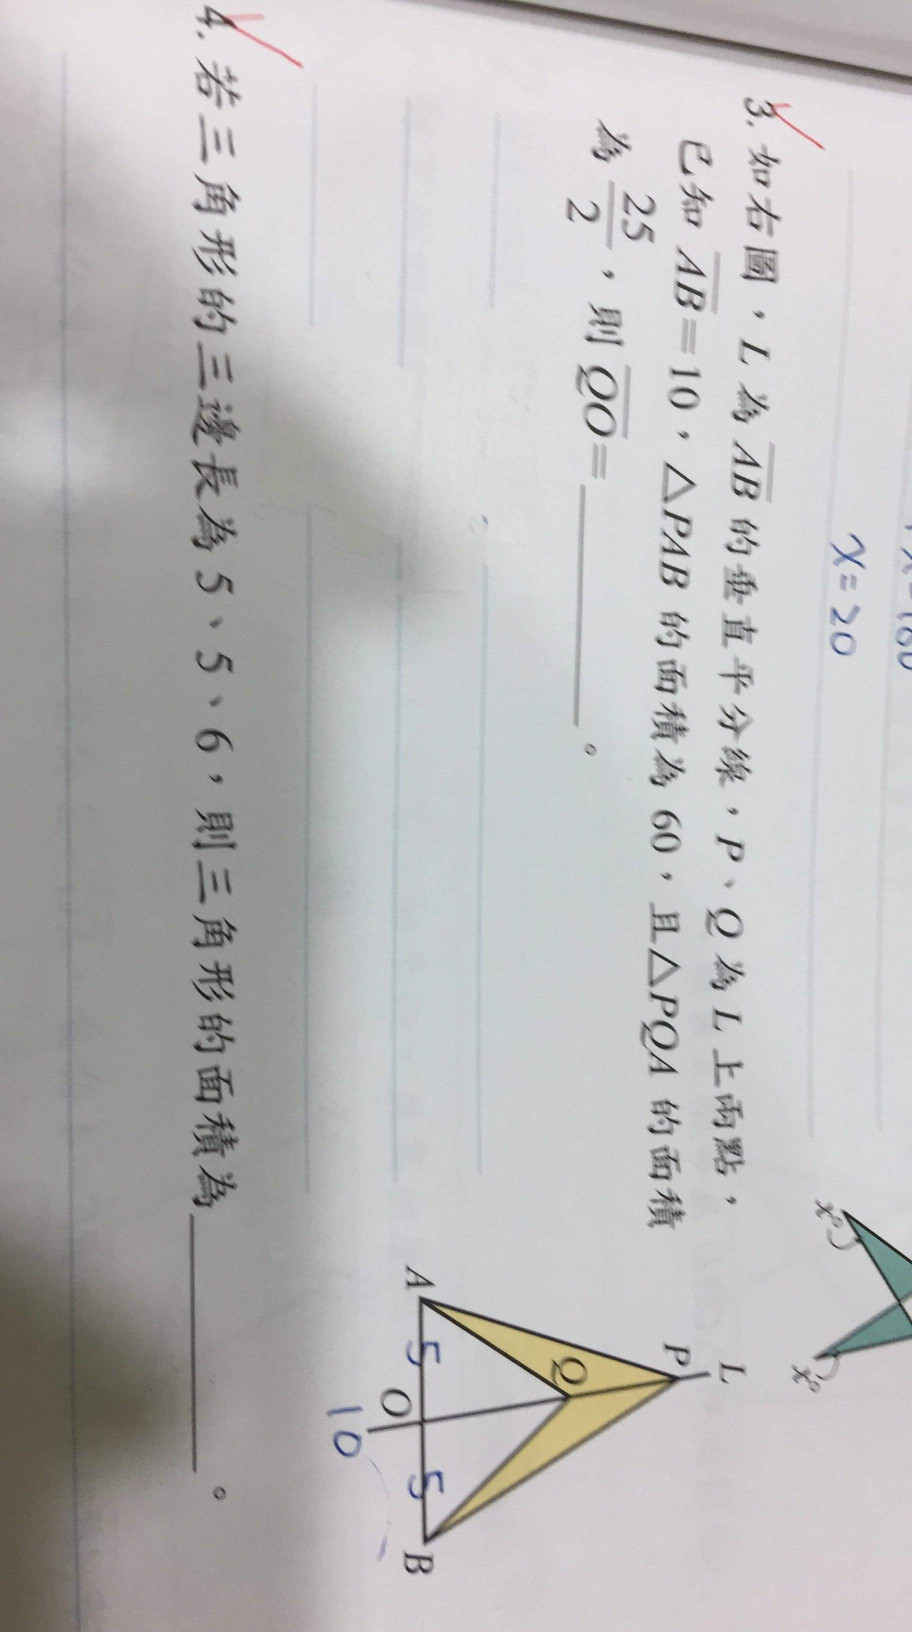 x=20
3. 如右圖，L 為 AB 的垂直平分線，P、Q 為 L 上兩點，
已知 AB=10，△PAB 的面積為 60，且△PQA 的面積
為 25/2，則 QO=＿＿＿＿。
x°
x°
L
P
Q
A
5
O
5
B
10
4. 若三角形的三邊長為 5、5、6，則三角形的面積為＿＿＿＿。